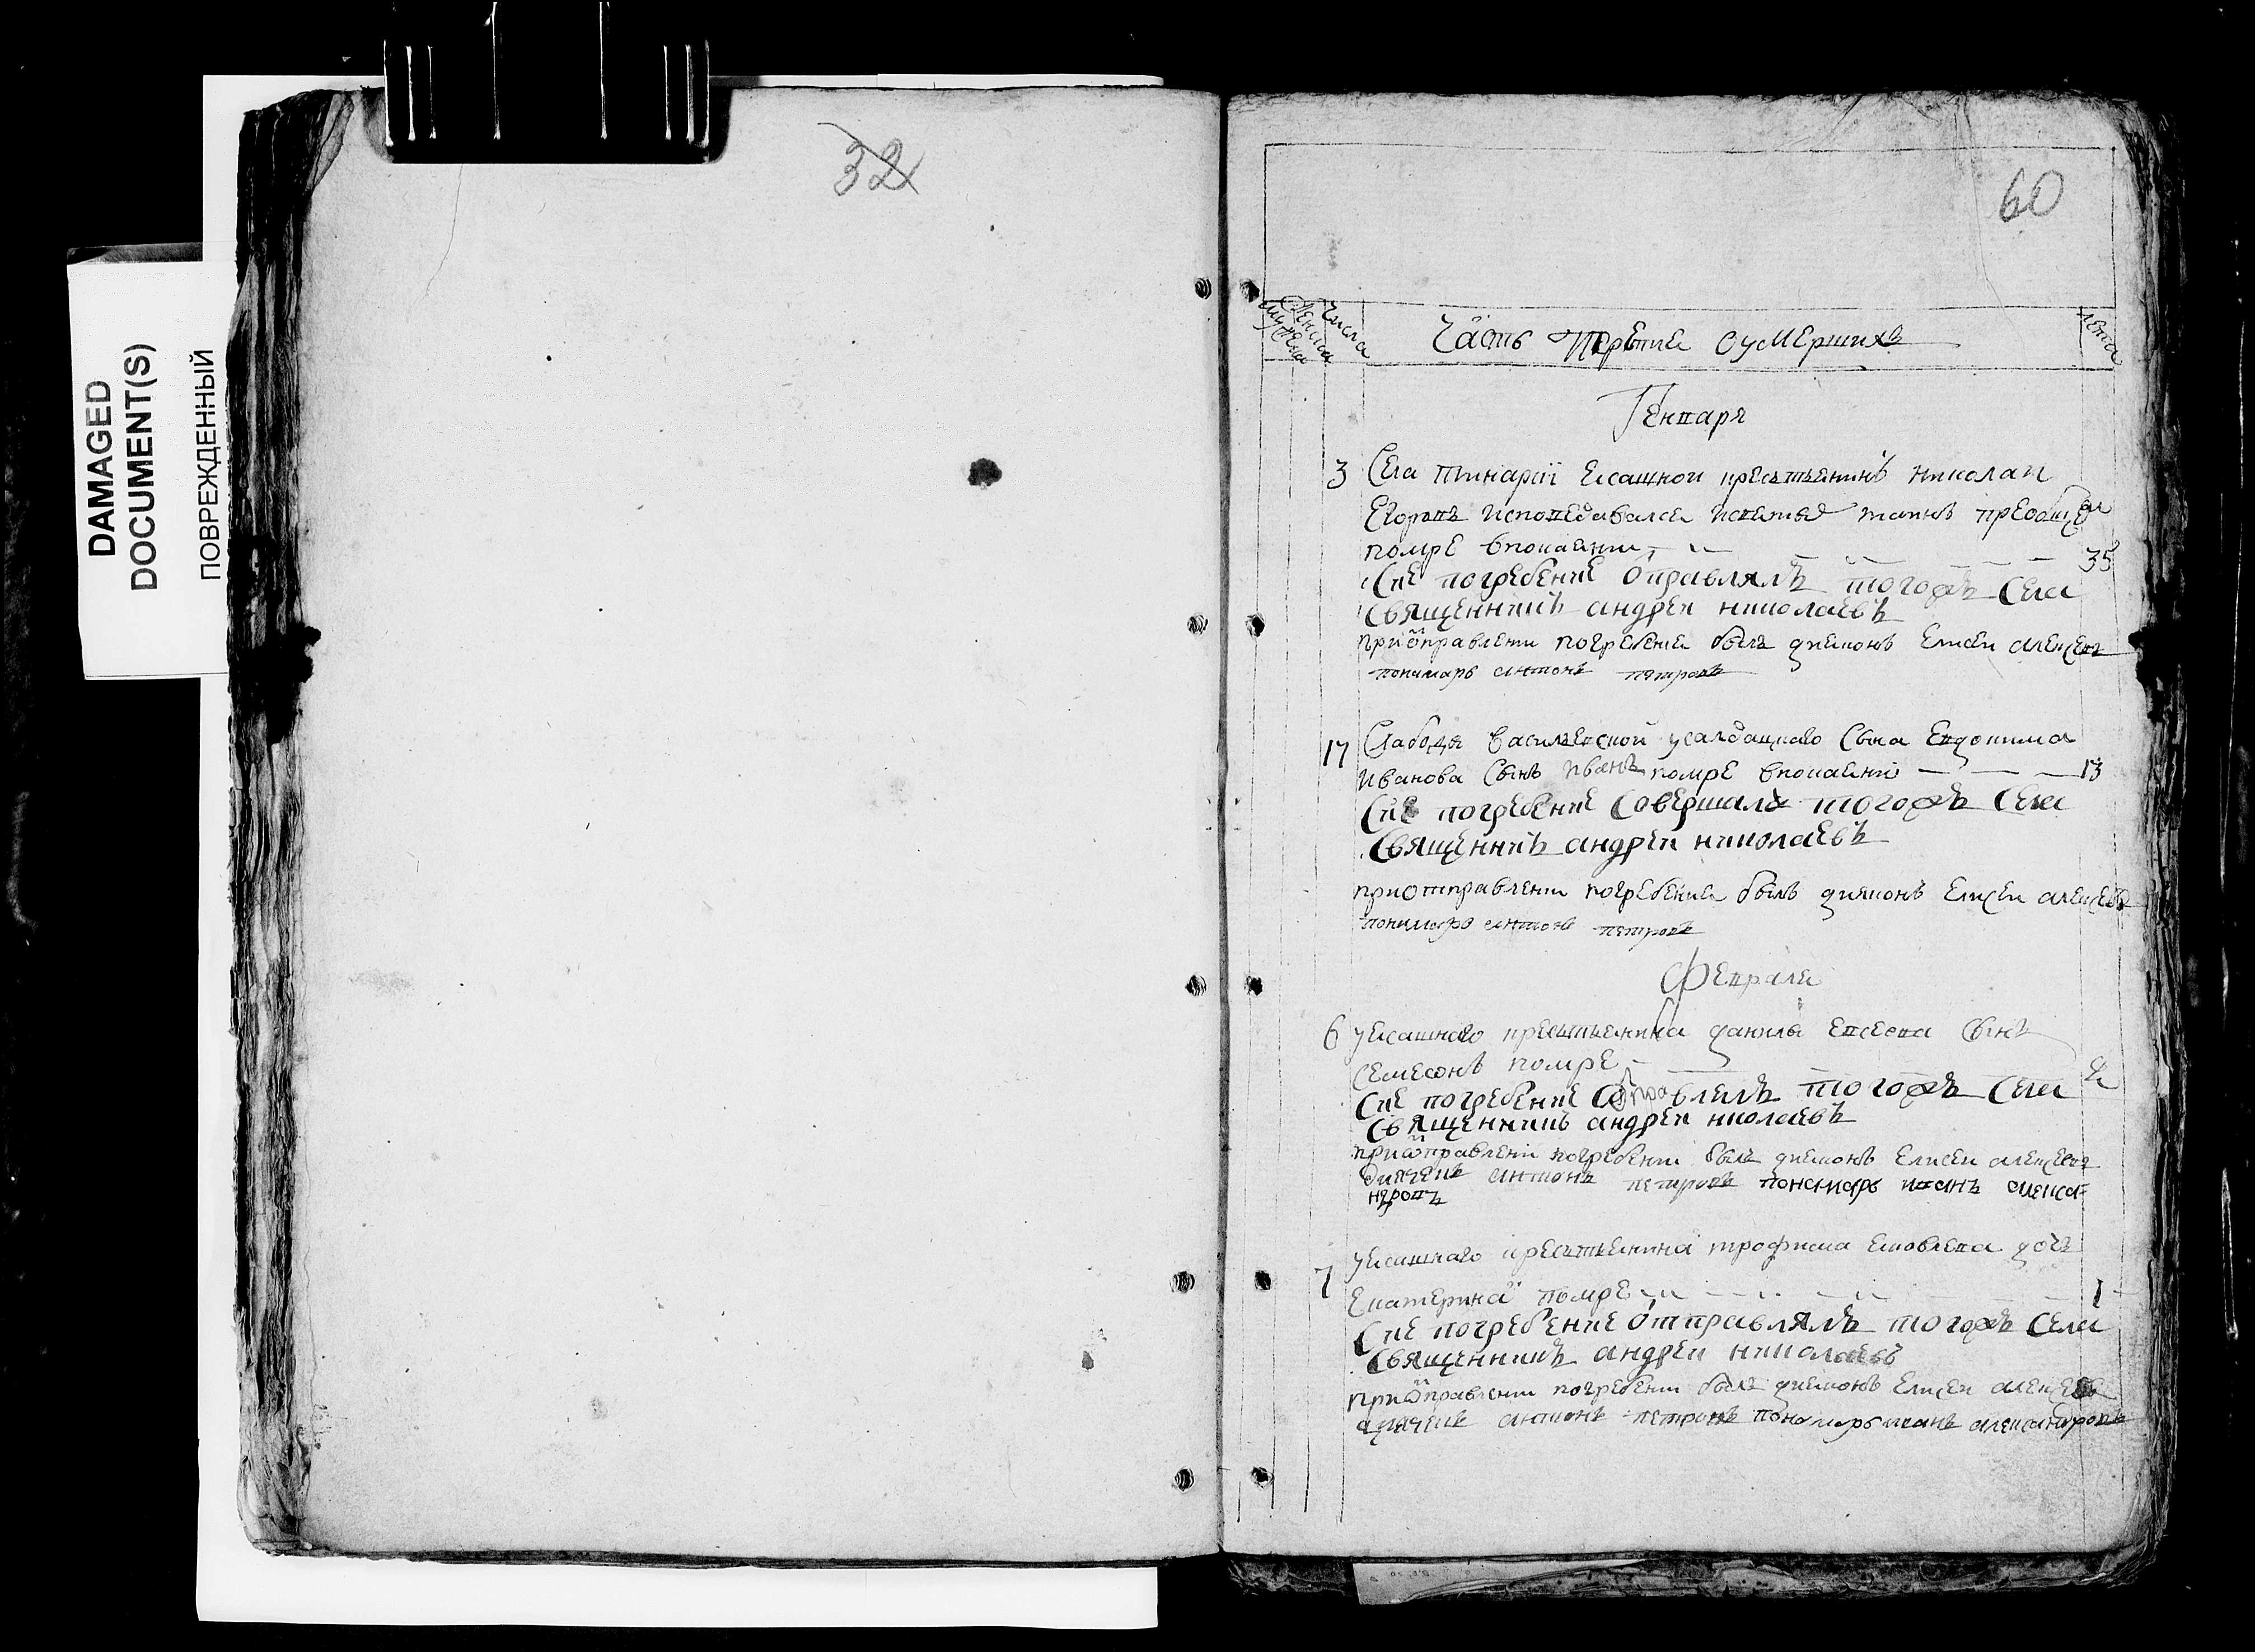 DAMAGED
DOCUMENT(S)
ПОВРЕЖДЕННЫЙ
32
60
числа
лета
Часть третие оумерших
Генваря
3 Села ясашной кресьтьенинъ николаи
Егоровъ исповедавался тоинъ
помре впокаении 35
Сие погребение отправлялъ тогожъ села
Священникъ андреи николаевъ
приѿправлени погребение былъ диаконъ Елисеи алексеевъ
пономарь антонъ петровъ
17 Слабоды василевской сына Евдокима
иванова сынъ иванъ помре впокаении 13
Сие погребение совершалъ тогожъ села
Священникъ андреи николаевъ
приотправлени погребение былъ дияконъ Елисеи алексеевъ
пономарь антонъ петровъ
Февраля
6 уясашнаго кресьтьенина данилы Евсеева сынъ
помре
Сие погребение отправлялъ тогожъ села
Священникъ андреи николаевъ
приѿправлени погребени былъ диаконъ Елисеи алексеевъ
дьячекъ антонъ петровъ пономарь иванъ алекса=
ндровъ
7 уясашнаго кресьтьенина трофима яковлева дочь
Екатерина помре 1
Сие погребение отправлялъ тогожъ села
Священникъ андреи николаевъ
приѿправлени погребени былъ диаконъ Елисеи алексеевъ
дьячекъ антонъ петровъ пономарь иванъ александровъ